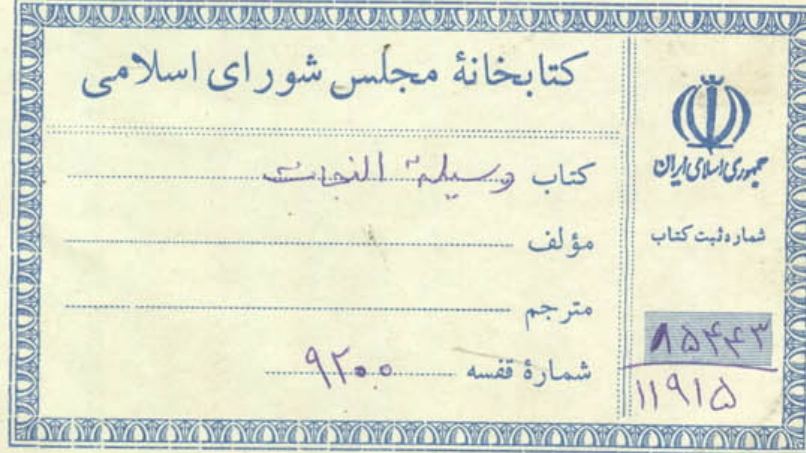 کتابخانهٔ مجلس شورای اسلامی
کتاب وسیلة النجات
مؤلف
مترجم
شمارهٔ قفسه ۹۲۰۰
جمهوری اسلامی ایران
شماره ثبت کتاب
۸۵۴۴۳
۱۱۹۱۵